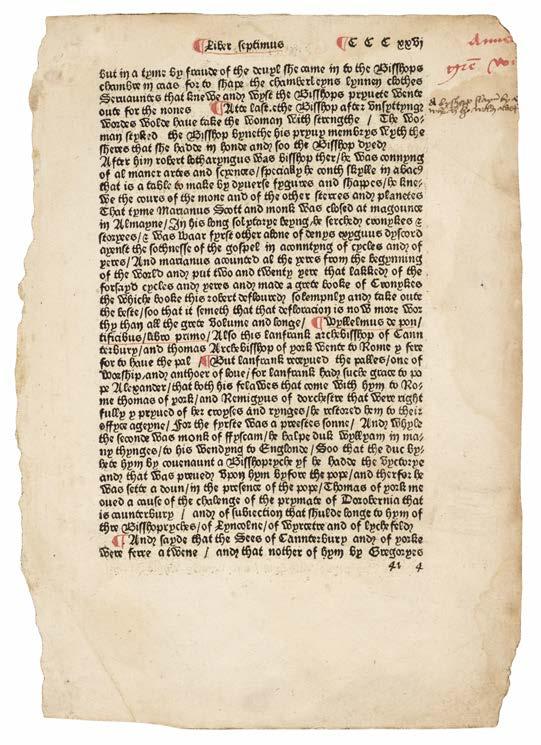 ¶Liber septimus ¶C C C xxvj
but in a tyme by fraude of the deuyl she came in to the Bisshops
chambre in caas for to shape the chamberleyns lynnen clothes
Seruauntes that knewe and wyst the Bisshops pryuete wente
oute for the nones ¶Atte laste the Bisshop after vnsyttynge
wordes wolde haue take the woman with strengthe / The wo-
man styked the Bisshop bynethe his pryuy membrys wyth the
sheres that she hadde in honde and soo the Bisshop dyed
After him robert lotharyngus was bisshop ther/he was connyng
of al maner artes and scyences/specially he couth skylle in abac9
that is a table to make by dyuerse fygures and shapes/he kne-
we the cours of the mone and of the other sterres and planetes
That tyme Marianus Scott and monk was closed at magounce
in Almayne/In his long solytarye beyng he serched cronykes &
storyes/& was waar fyrst other alone of denys exyguus dyscord
ayenst the sothnesse of the gospel in acomntyng of cycles and of
yeres/And marianus acounted al the yeres from the begynnyng
of the world and put two and twenty yere that lakked of the
forsayd cycles and yeres and made a grete booke of Cronykes
the whiche booke this robert defloured solempnly and take oute
the beste/soo that it semeth that that defloracion is no wwe wor
thy than alle the grete volume and longe/ ¶Wyllelmus de pon/
tificibus/libro primo/Also this lanfrank archebisshop of Cann
terbury/and thomas Archebisshop of york wente to Rome y fere
for to haue the pal ¶But lanfrank receyued the palles/one of
worship and another of loue/for lanfrank had suche grace to po
pe Alexander/that both his felawes that come with hym to Ro-
me thomas of york/and Remigyus of dorchestre that were right
fully y pryued of her croyses and rynges/he restored hem to their
offyce ageyne/For the fyrste was a preestes sonne/ And whyle
the seconde was monk of ffyscam/he halpe duk wyllyam in ma-
ny thynges/to his wendyng to Englonde/Soo that the duc by-
hete hym by couenaunt a Bisshopryche yf he hadde the vyctorye
and that was preued vpon hym byfore the pope/and therfor he
was sette a doun/in the presence of the pope/Thomas of york me
oued a cause of the chalenge of the prymate of Dorobernia that
is caunterbury / and of subiection that shulde longe to hym of
thre Bisshopryches/of Lyncolne/of wyrcetre and of lychefeld
¶And sayde that the Sees of Cannterbury and of yorke
were ferre atwene / and that nother of hym by Gregoryes
41 4